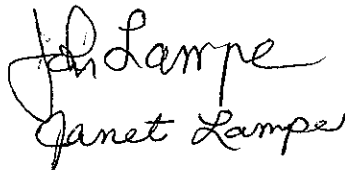 John Lampe
Janet Lampe